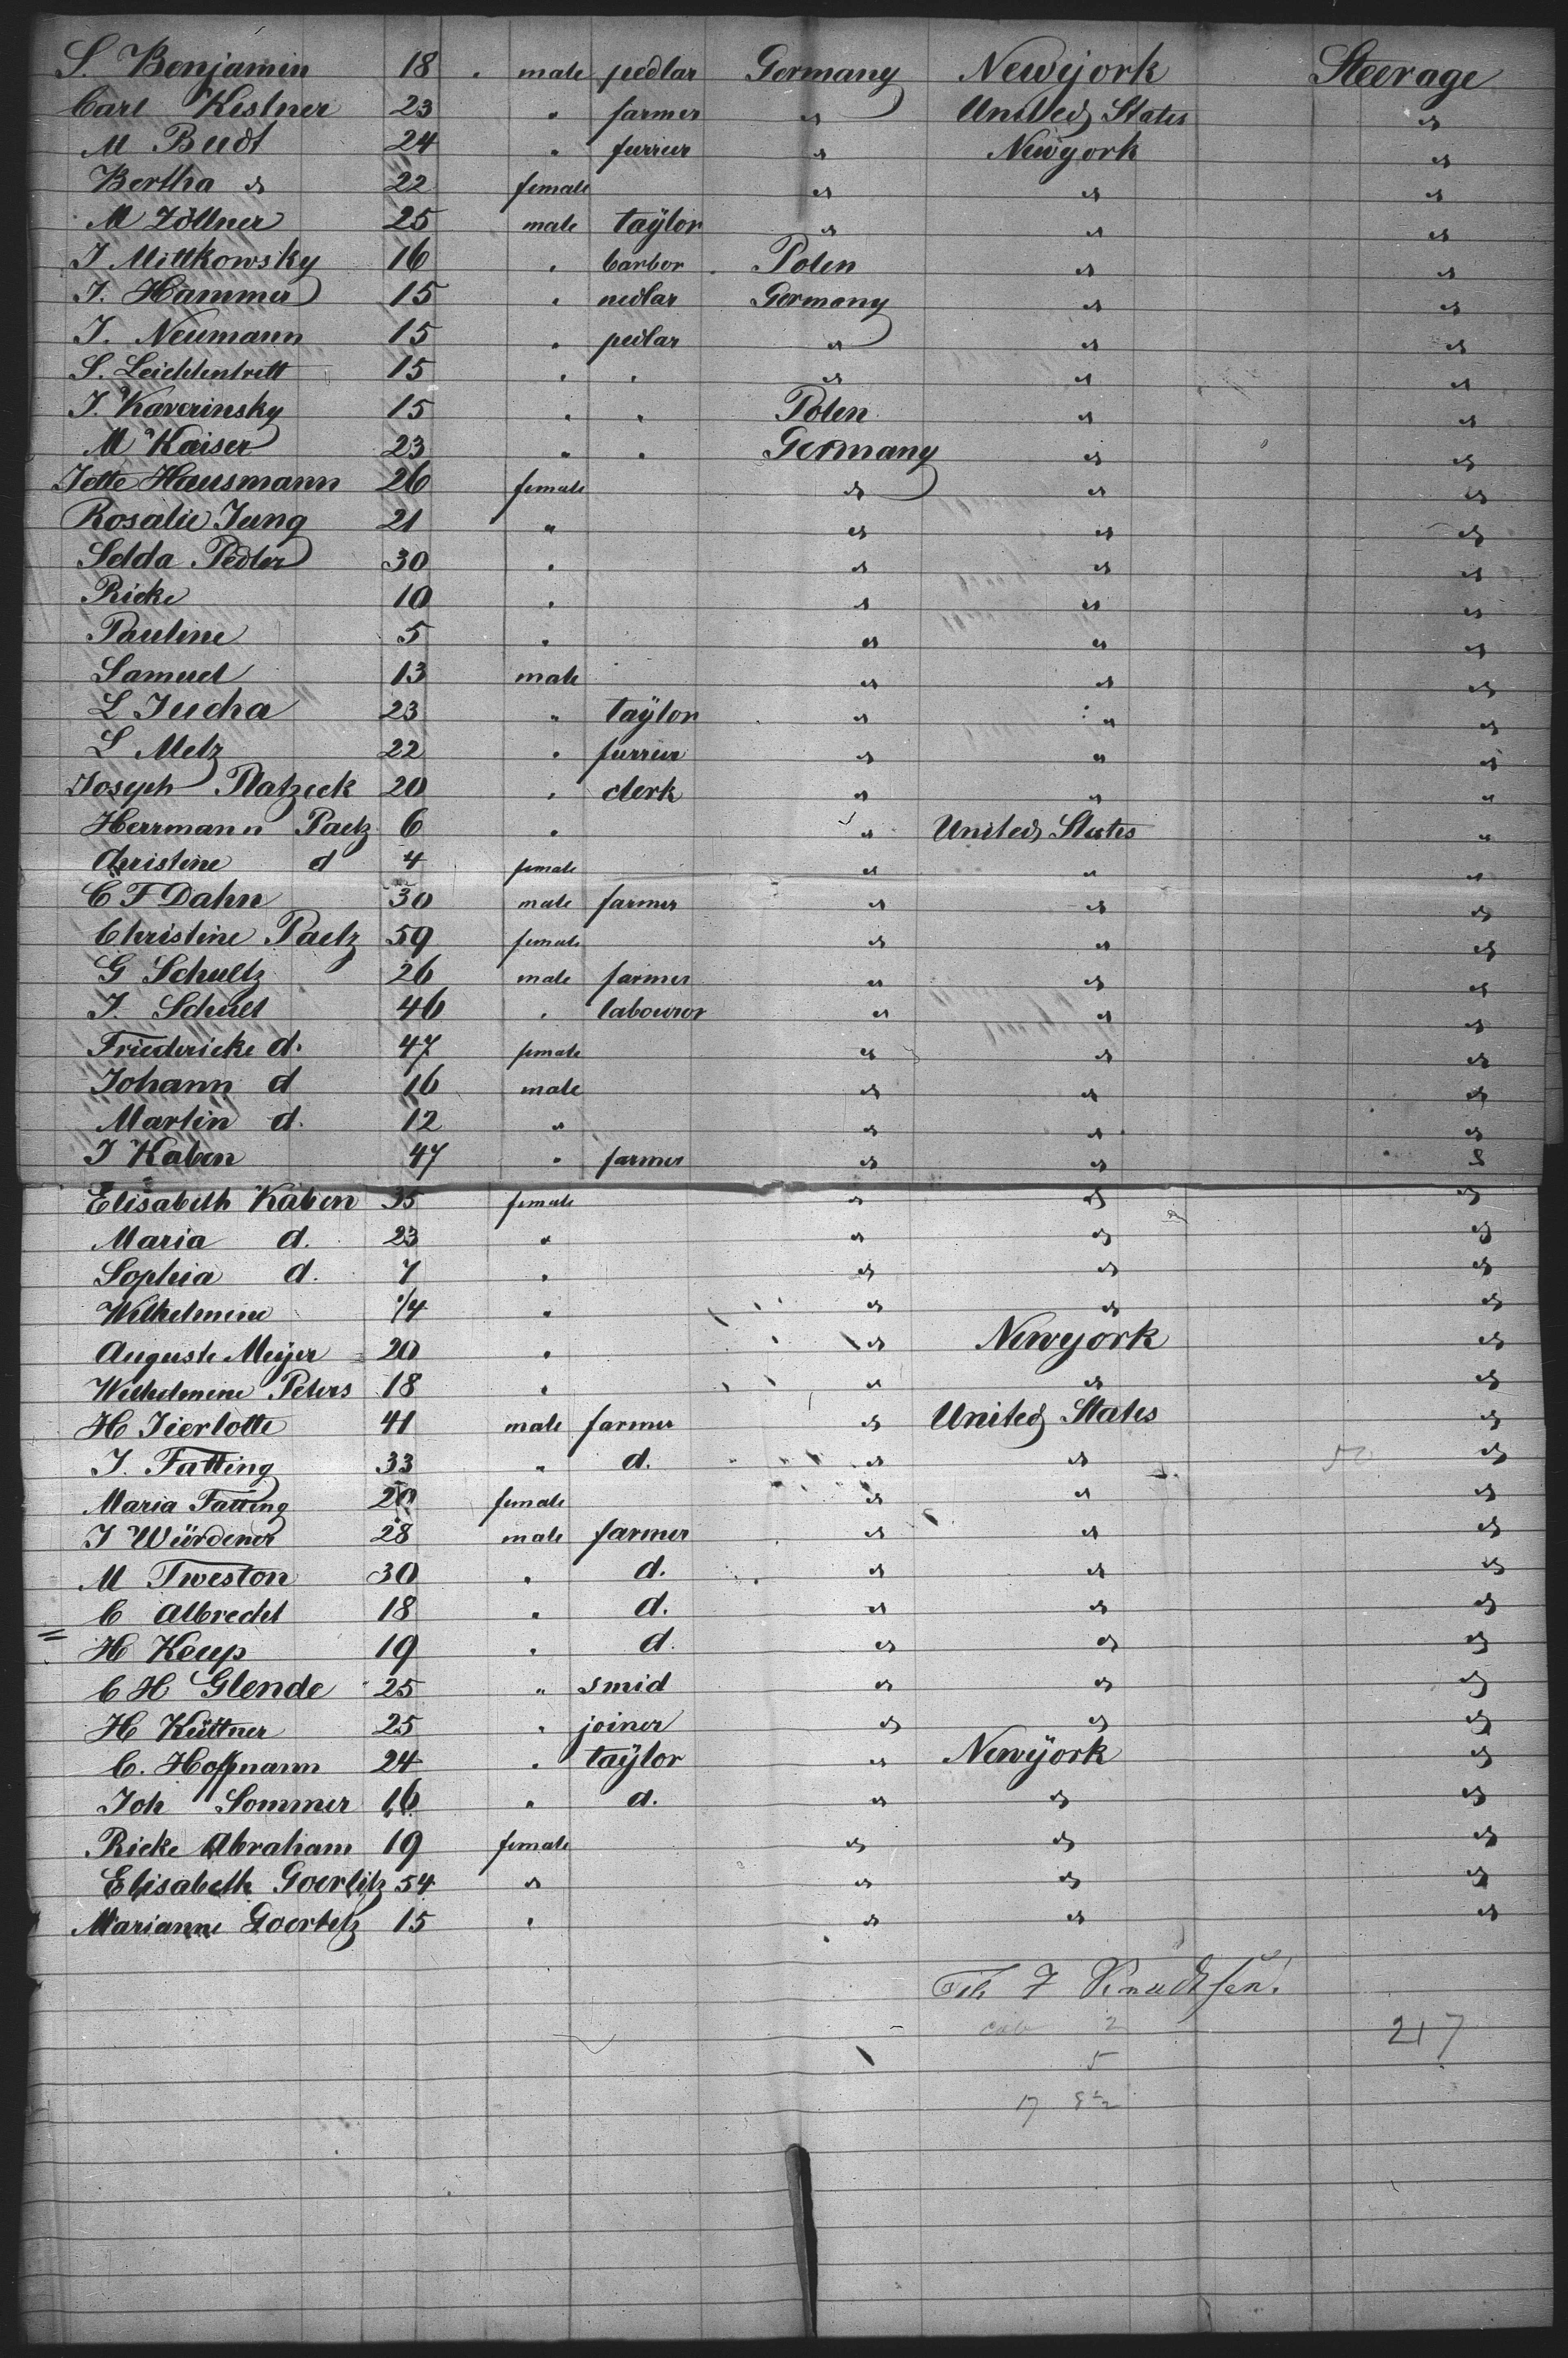 S. Benjamin 18 " male pedlar Germany Newyork Steerage
Carl Kestner 23 " farmer " United States "
M Budt 24 " furrier " Newyork "
Bertha " 22 female " " "
M Zöllner 25 male taÿlor " " "
J Mittkowsky 16 " barbor Polen " "
J. Hammer 15 " nedlar Germany " "
J. Neumann 15 " pedlar " " "
S. Leichtentritt 15 " " " " "
J. Kaverinsky 15 " " Polen " "
M Kaiser 23 " " Germany " "
Jette Hausmann 26 female " " "
Rosalie Jung 21 " " " "
Selda Pedler 30 " " " "
Ricke 10 " " " "
Pauline 5 " " " "
Samuel 13 male " " "
L Jucha 23 " taÿlor " " "
L Metz 22 " furrier " " "
Joseph Platzeck 20 " clerk " " "
Herrmann Paetz 6 " " United States "
Christine d 4 female " " "
C F Dahn 30 male farmer " " "
Christine Paetz 59 female " " "
G Schultz 26 male farmer " " "
J. Schult 46 " labouror " " "
Friedericke d. 47 female " " "
Johann d 16 male " " "
Martin d. 12 " " " "
J Kaben 47 " farmer " " "
Elisabeth Kaben 35 female " " "
Maria d. 23 " " " "
Sophia d. 7 " " " "
Wilhelmine 1/4 " " " "
Auguste Meyer 20 " " Newyork "
Wilhelmine Peters 18 " " " "
H Tierlotte 41 male farmer " United States "
J. Fatting 33 " d. " " "
Maria Fatting 20 female " " "
J Würdener 28 male farmer " " "
M Tweston 30 " d. " " "
C Albrecht 18 " d. " " "
H Keup 19 " d. " " "
C H Glende 25 " smid " " "
H Küttner 25 " joiner " " "
C. Hoffmann 24 " taÿlor " Newÿork "
Joh Sommer 16 " d. " " "
Ricke Abraham 19 female " " "
Elisabeth Goerlitz 54 " " " "
Marianne Goerletz 15 " " " "
Knudtsen.
cab 2
217
5
17